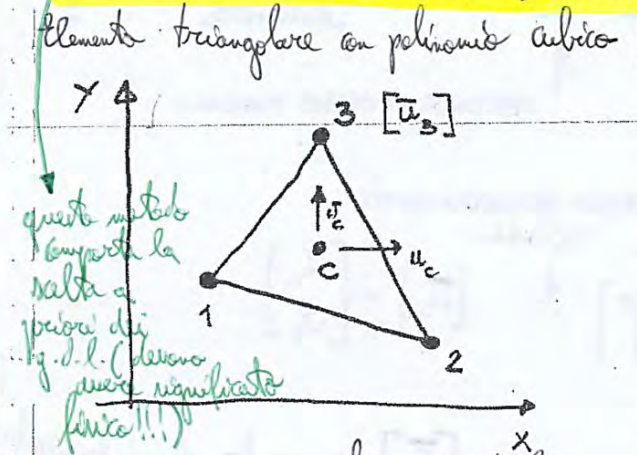 Elemento triangolare con polinomio cubico
Y
3 [ū₃]
v_c
C
u_c
1
2
X
questo metodo
comporta la
scelta a
priori dei
g.d.l. (devono
avere significato
fisico!!!)